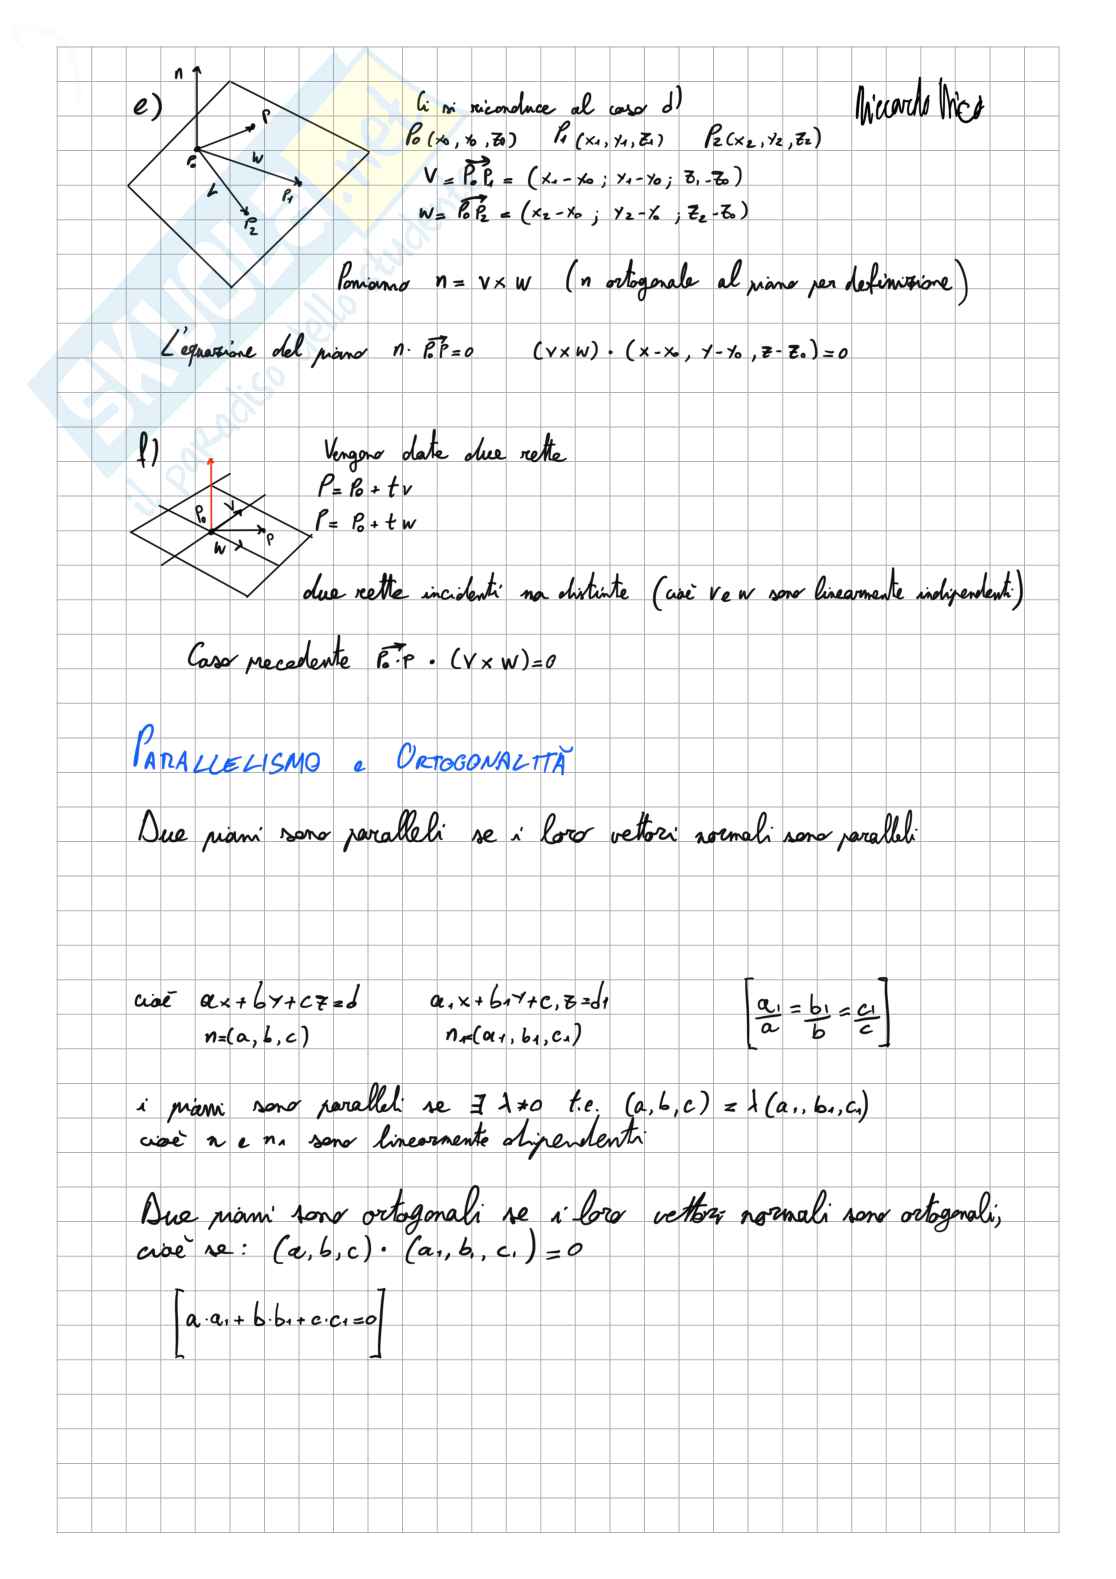 e) Ci si riconduce al caso d)
Riccardo
n
P
P₀
W
P₁
P₂
P₀(x₀, y₀, z₀) P₁(x₁, y₁, z₁) P₂(x₂, y₂, z₂)
V = P₀P₁ = (x₁-x₀ ; y₁-y₀ ; z₁-z₀)
W = P₀P₂ = (x₂-x₀ ; y₂-y₀ ; z₂-z₀)
Poniamo n = v × w (n ortogonale al piano per definizione)
L'equazione del piano n · P₀P = 0 (v×w) · (x-x₀, y-y₀, z-z₀) = 0
SKUOLA.net
il paradiso dello studente
f) Vengono date due rette
P = P₀ + t v
P = P₀ + t w
P₀
V
P
W
due rette incidenti ma distinte (cioè v e w sono linearmente indipendenti)
Caso precedente P₀·P · (V × W) = 0
PARALLELISMO e ORTOGONALITÀ
Due piani sono paralleli se i loro vettori normali sono paralleli
cioè ax + by + cz = d a₁x + b₁y + c₁z = d₁ [a₁/a = b₁/b = c₁/c]
n = (a, b, c) n₁ = (a₁, b₁, c₁)
i piani sono paralleli se ∃ λ≠0 t.c. (a, b, c) = λ(a₁, b₁, c₁)
cioè n e n₁ sono linearmente dipendenti
Due piani sono ortogonali se i loro vettori normali sono ortogonali,
cioè se: (a, b, c) · (a₁, b₁, c₁) = 0
[a·a₁ + b·b₁ + c·c₁ = 0]